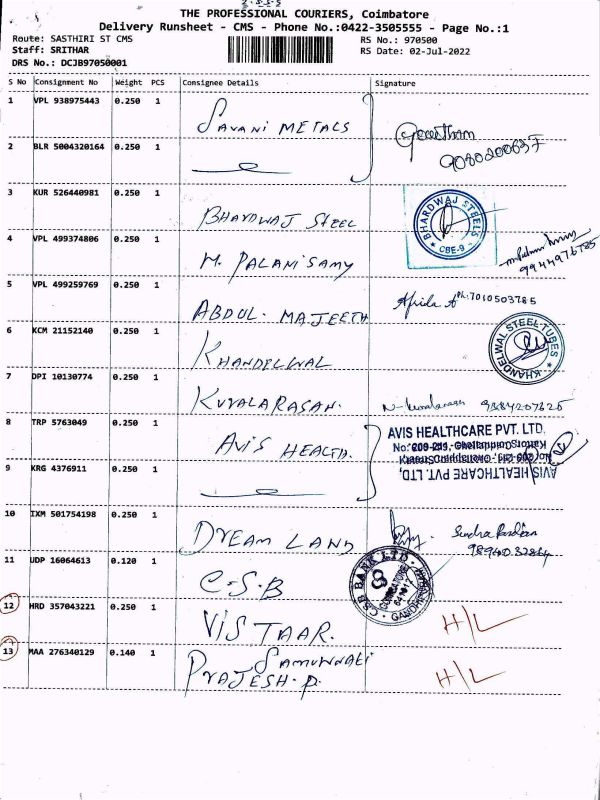 THE PROFESSIONAL COURIERS, Coimbatore
Delivery Runsheet - CMS - Phone No.:0422-3505555 - Page No.:1
Route: SASTHIRI ST CMS
RS No.: 970500
Staff: SRITHAR
RS Date: 02-Jul-2022
DRS No.: DCJB97050001
S No Consignment No Weight PCS Consignee Details Signature
1 VPL 938975443 0.250 1 SAVANI METALS Gowtham
2 BLR 5004320164 0.250 1
3 KUR 526440981 0.250 1 BHARDWAJ STEEL
BHARDWAJ STEELS
CBE-9
4 VPL 499374806 0.250 1 M. PALANISAMY
9944976785
5 VPL 499259769 0.250 1 ABDUL. MAJEETH Afrida A Ph:7010503785
6 KCM 21152140 0.250 1 KHANDELWAL
KHANDELWAL STEEL TUBES
7 DPI 10130774 0.250 1 KUVALARASAN. 9384207625
8 TRP 5763049 0.250 1 AVIS HEALTH.
AVIS HEALTHCARE PVT. LTD.
9 KRG 4376911 0.250 1
AVIS HEALTHCARE PVT. LTD,
10 IXM 501754198 0.250 1 DREAM LAND
11 UDP 16064613 0.120 1 C-S.B
CSB BANK LTD
COIMBATORE
641012
12 HRD 357043221 0.250 1 VISTAAR. H/L
13 MAA 276340129 0.140 1 SAMUNNATI
PRAJESH.P. H/L